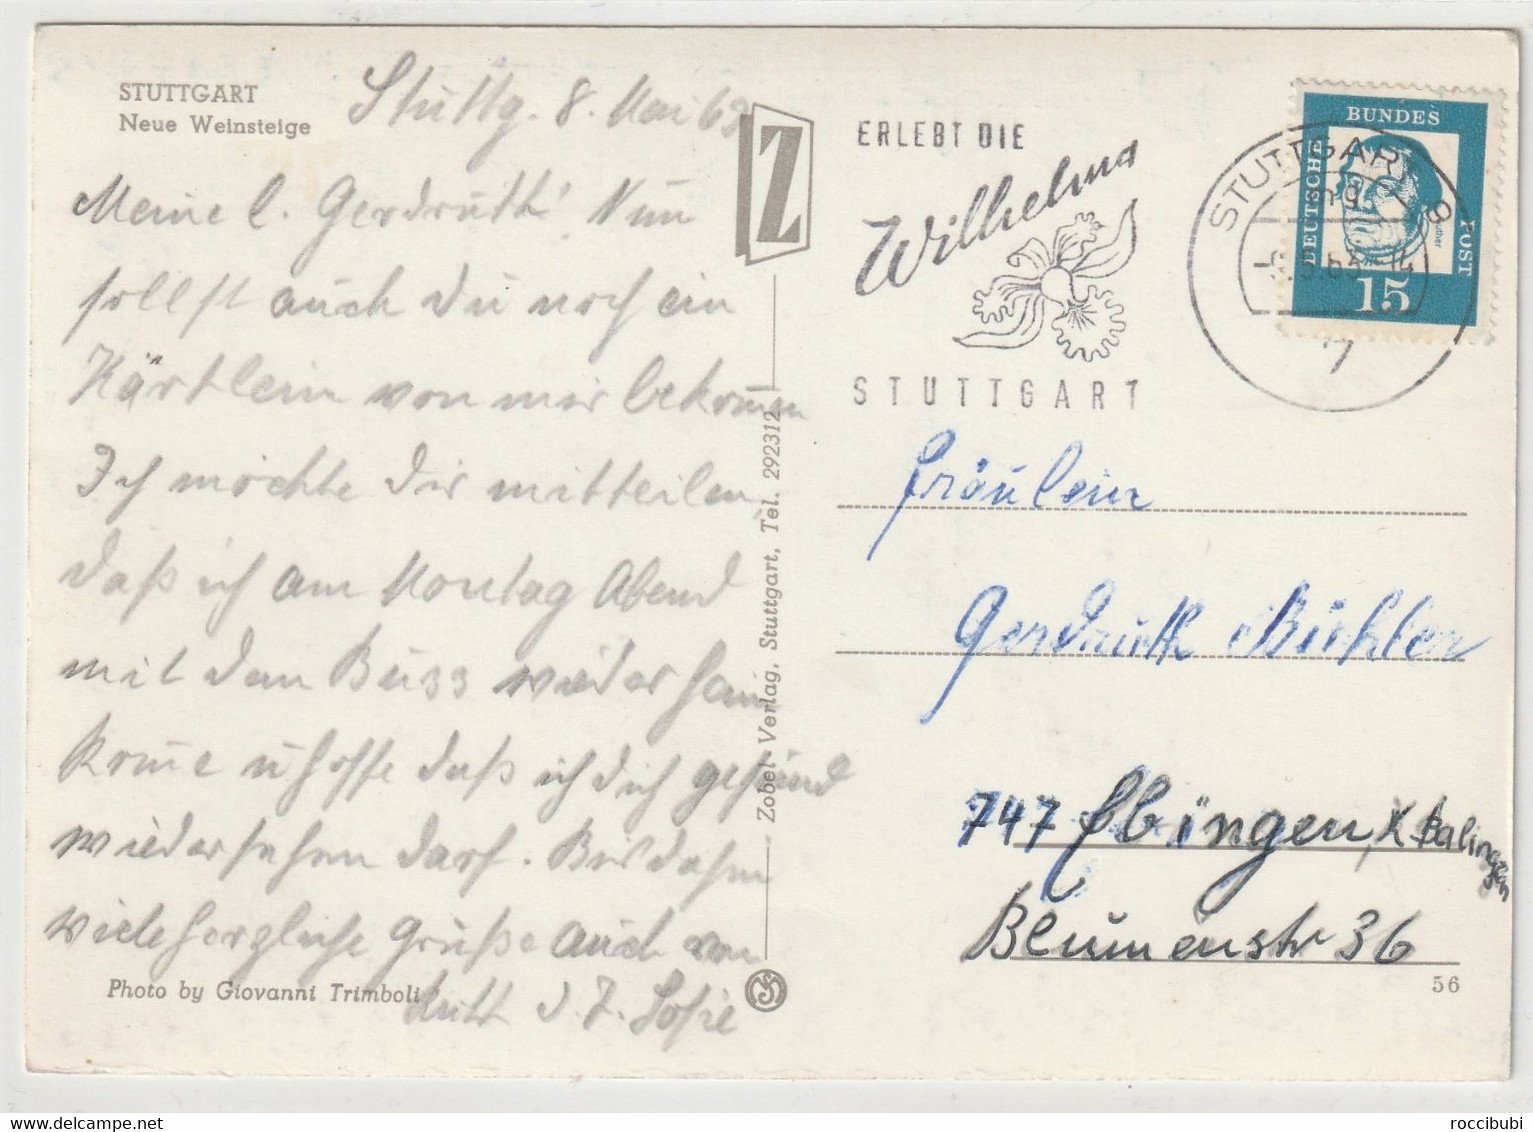 STUTTGART
Neue Weinsteige
Stuttg. 8. Mai 63
Meine l. Gerdruth! Nun
sollst auch Du noch ein
Kärtlein von mir bekommen
Ich möchte Dir mitteilen,
daß ich am Montag Abend
mit dem Buss wieder heim
komme u hoffe daß ich dich gesund
wiedersehen darf. Bis dahin
viele herzliche Grüße auch von
Ruth d. T. Sofie
Photo by Giovanni Trimboli
Z
Zobel-Verlag, Stuttgart, Tel. 292312
ERLEBT DIE
Wilhelma
STUTTGART
STUTTGART 9
BUNDES
DEUTSCHE
POST
Luther
15
Fräulein
Gerdruth Bühler
747 Ebingen, K Balingen
Blumenstr 36
56
roccibubi